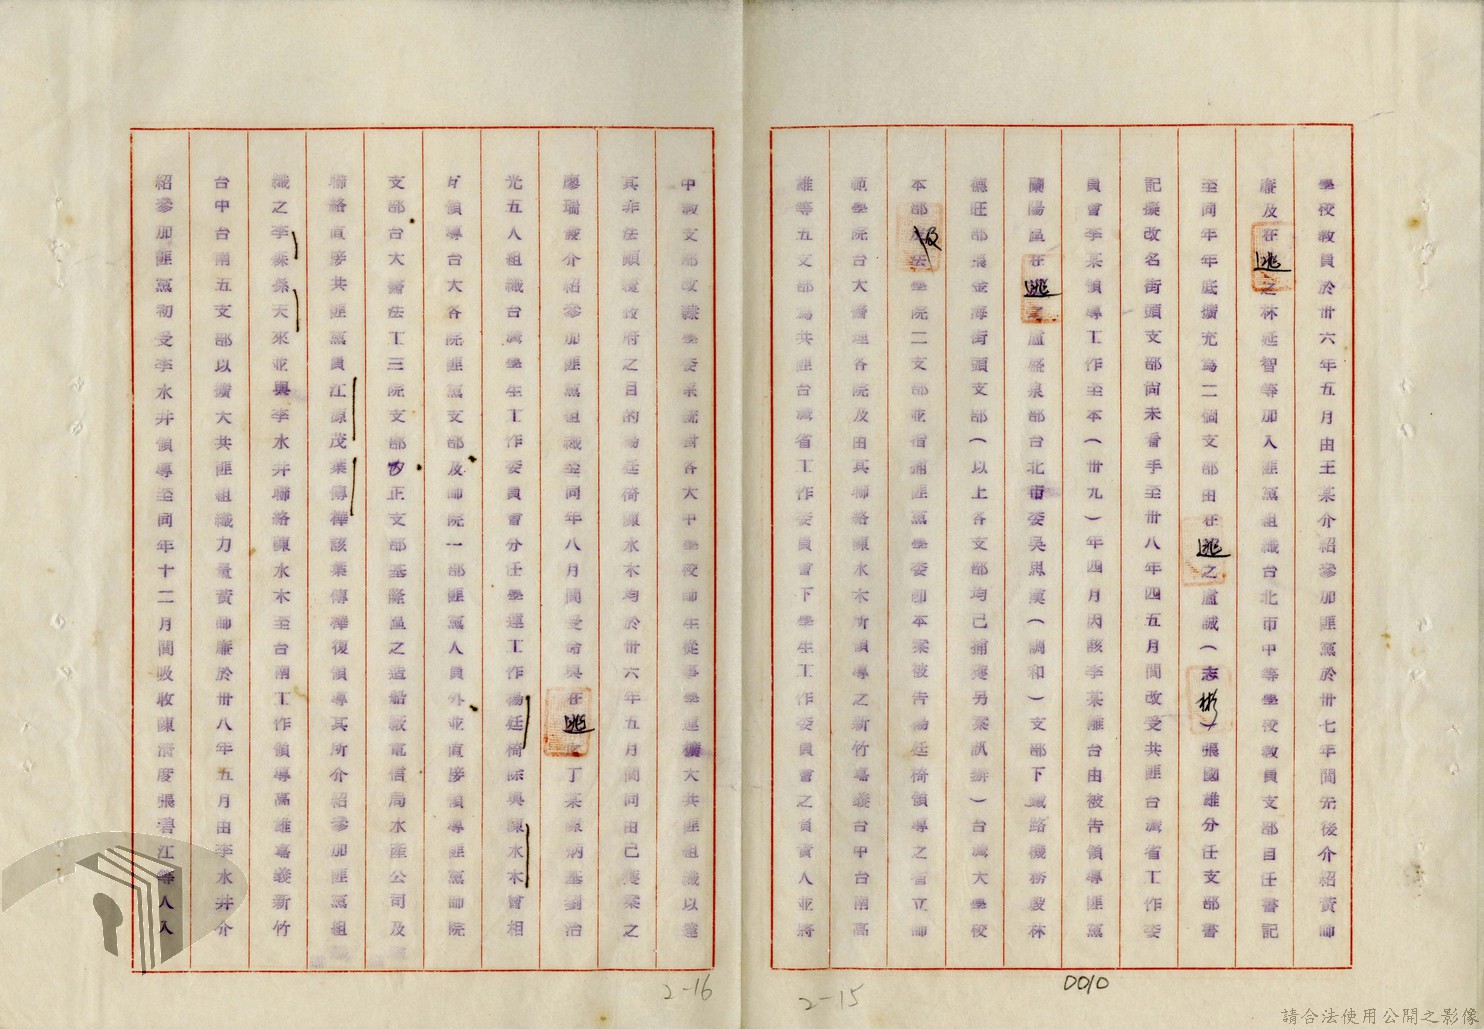 學校教員於卅六年五月由王某介紹參加匪黨於卅七年間先後介紹黃師
廉及在逃之林延智等加入匪黨組織台北市中等學校教員支部自任書記
至同年年底擴充為二個支部由在逃之盧誠(志彬)張國雄分任支部書
記擬改名街頭支部尚未着手至卅八年四五月間改受共匪台灣省工作委
員會李某領導工作至本(卅九)年四月因該李某離台由被告領導匪黨
蘭陽區在逃之盧盛泉部台北市委吳思漢(調和)支部下鐵路機務段林
德旺部張金海街頭支部(以上各支部均已捕獲另案訊辦)台灣大學校
本部及法學院二支部並指揮匪黨學委即本案被告楊廷椅領導之省立師
範學院台大醫理各院及由其聯絡陳水木所領導之新竹嘉義台中台南高
雄等五支部為共匪台灣省工作委員會下學生工作委員會之負責人並將
中教支部改隸學委系統對各大中學校師生從事學運擴大共匪組織以達
其非法顛覆政府之目的楊廷椅陳水木均於卅六年五月間同由已獲案之
廖瑞發介紹參加匪黨組織至同年八月間受命與在逃之丁某孫炳基劉沼
光五人組織台灣學生工作委員會分任學運工作楊廷椅除與陳水木會相
才領導台大各院匪黨支部及師院一部匪黨人員外並直接領導匪黨師院
支部台大醫法工三院支部 正支部基隆區之造船廠電信局水產公司及
聯絡直接共匪黨員江源茂葉傳樺該葉傳樺復領導其所介紹參加匪黨組
織之李 孫天來並與李水井聯絡陳水木至台南工作領導高雄嘉義新竹
台中台南五支部以擴大共匪組織力量黃師廉於卅八年五月由李水井介
紹參加匪黨初受李水井領導至同年十二月間吸收陳清度張 江等人入
2-16
2-15
0010
請合法使用公開之影像